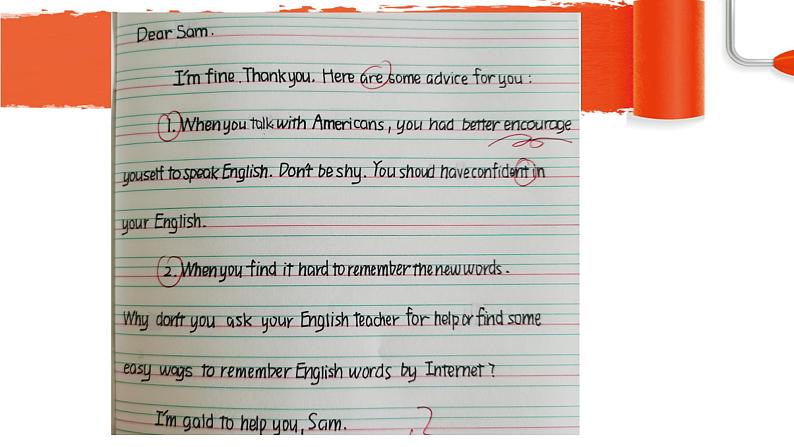 Dear Sam.
I'm fine. Thank you. Here are some advice for you :
1. When you talk with Americans, you had better encourage
youself to speak English. Don't be shy. You shoud have confident in
your English.
2. When you find it hard to remember the new words.
Why don't you ask your English teacher for help or find some
easy ways to remember English words by Internet?
I'm gald to help you, Sam.